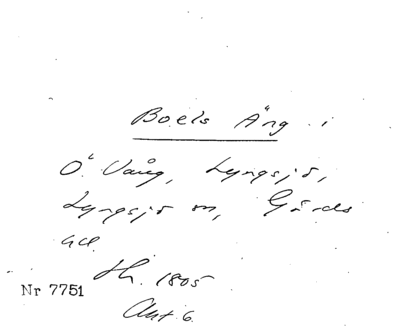 Boels Äng i
Ö. Vång, Lyngsjö,
Lyngsjö sn, Gärds
hd.
Sk. 1805
Nr 7751
Akt 6.